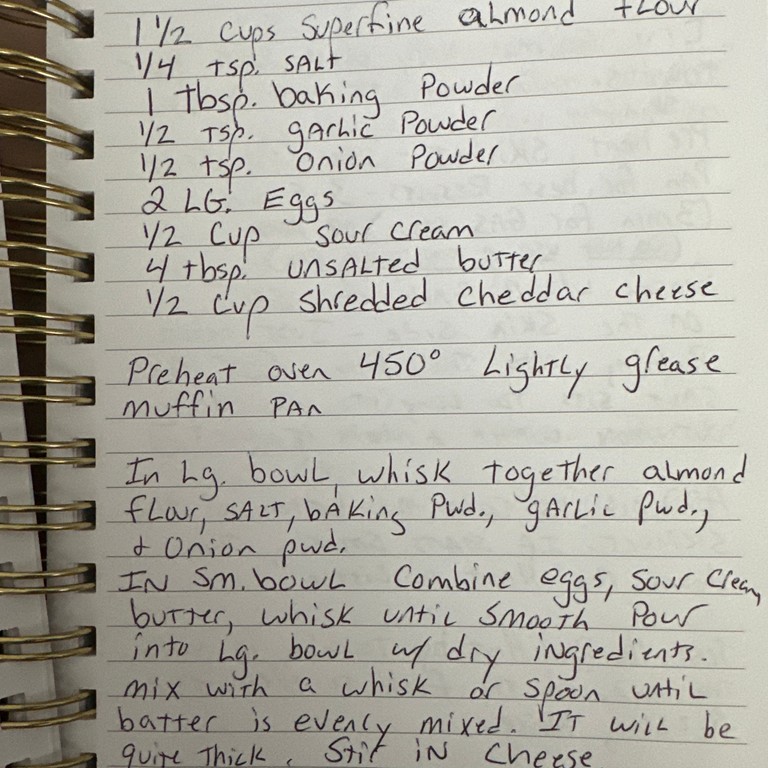 1 1/2 cups superfine almond flour
1/4 tsp. salt
1 tbsp. baking powder
1/2 tsp. garlic powder
1/2 tsp. onion powder
2 LG. Eggs
1/2 cup sour cream
4 tbsp. unsalted butter
1/2 cup shredded cheddar cheese
Preheat oven 450° Lightly grease
muffin pan
In Lg. bowl, whisk together almond
flour, salt, baking pwd., garlic pwd.,
& onion pwd.
In sm. bowl combine eggs, sour cream,
butter, whisk until smooth Pour
into Lg. bowl w/ dry ingredients.
mix with a whisk or spoon until
batter is evenly mixed. It will be
quite thick. Stir in cheese